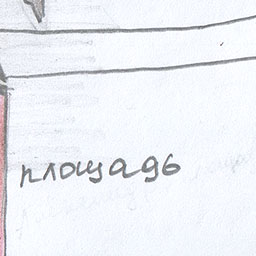 площадь